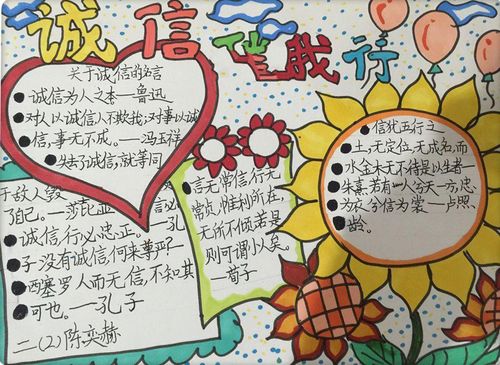 诚信伴我行
关于诚信的名言
诚信为人之本——鲁迅
对人以诚信人不欺我;对事以诚
信,事无不成。——冯玉祥
失去了诚信,就等同
于敌人毁
了自己。——莎
诚信,行必忠正。——孔
子·没有诚信,何来尊严?
西塞罗 人而无信,不知其
可也。——孔子
二(2)陈奕赫
言无常信,行无
常贞,惟利所在,
无所不倾,若是
则可谓小人矣。
——荀子
信犹五行之
土,无定位,无成名,而
水金木无不待是以生者——
朱熹·若有人兮天一方,忠
为衣兮信为裳——卢照
龄。